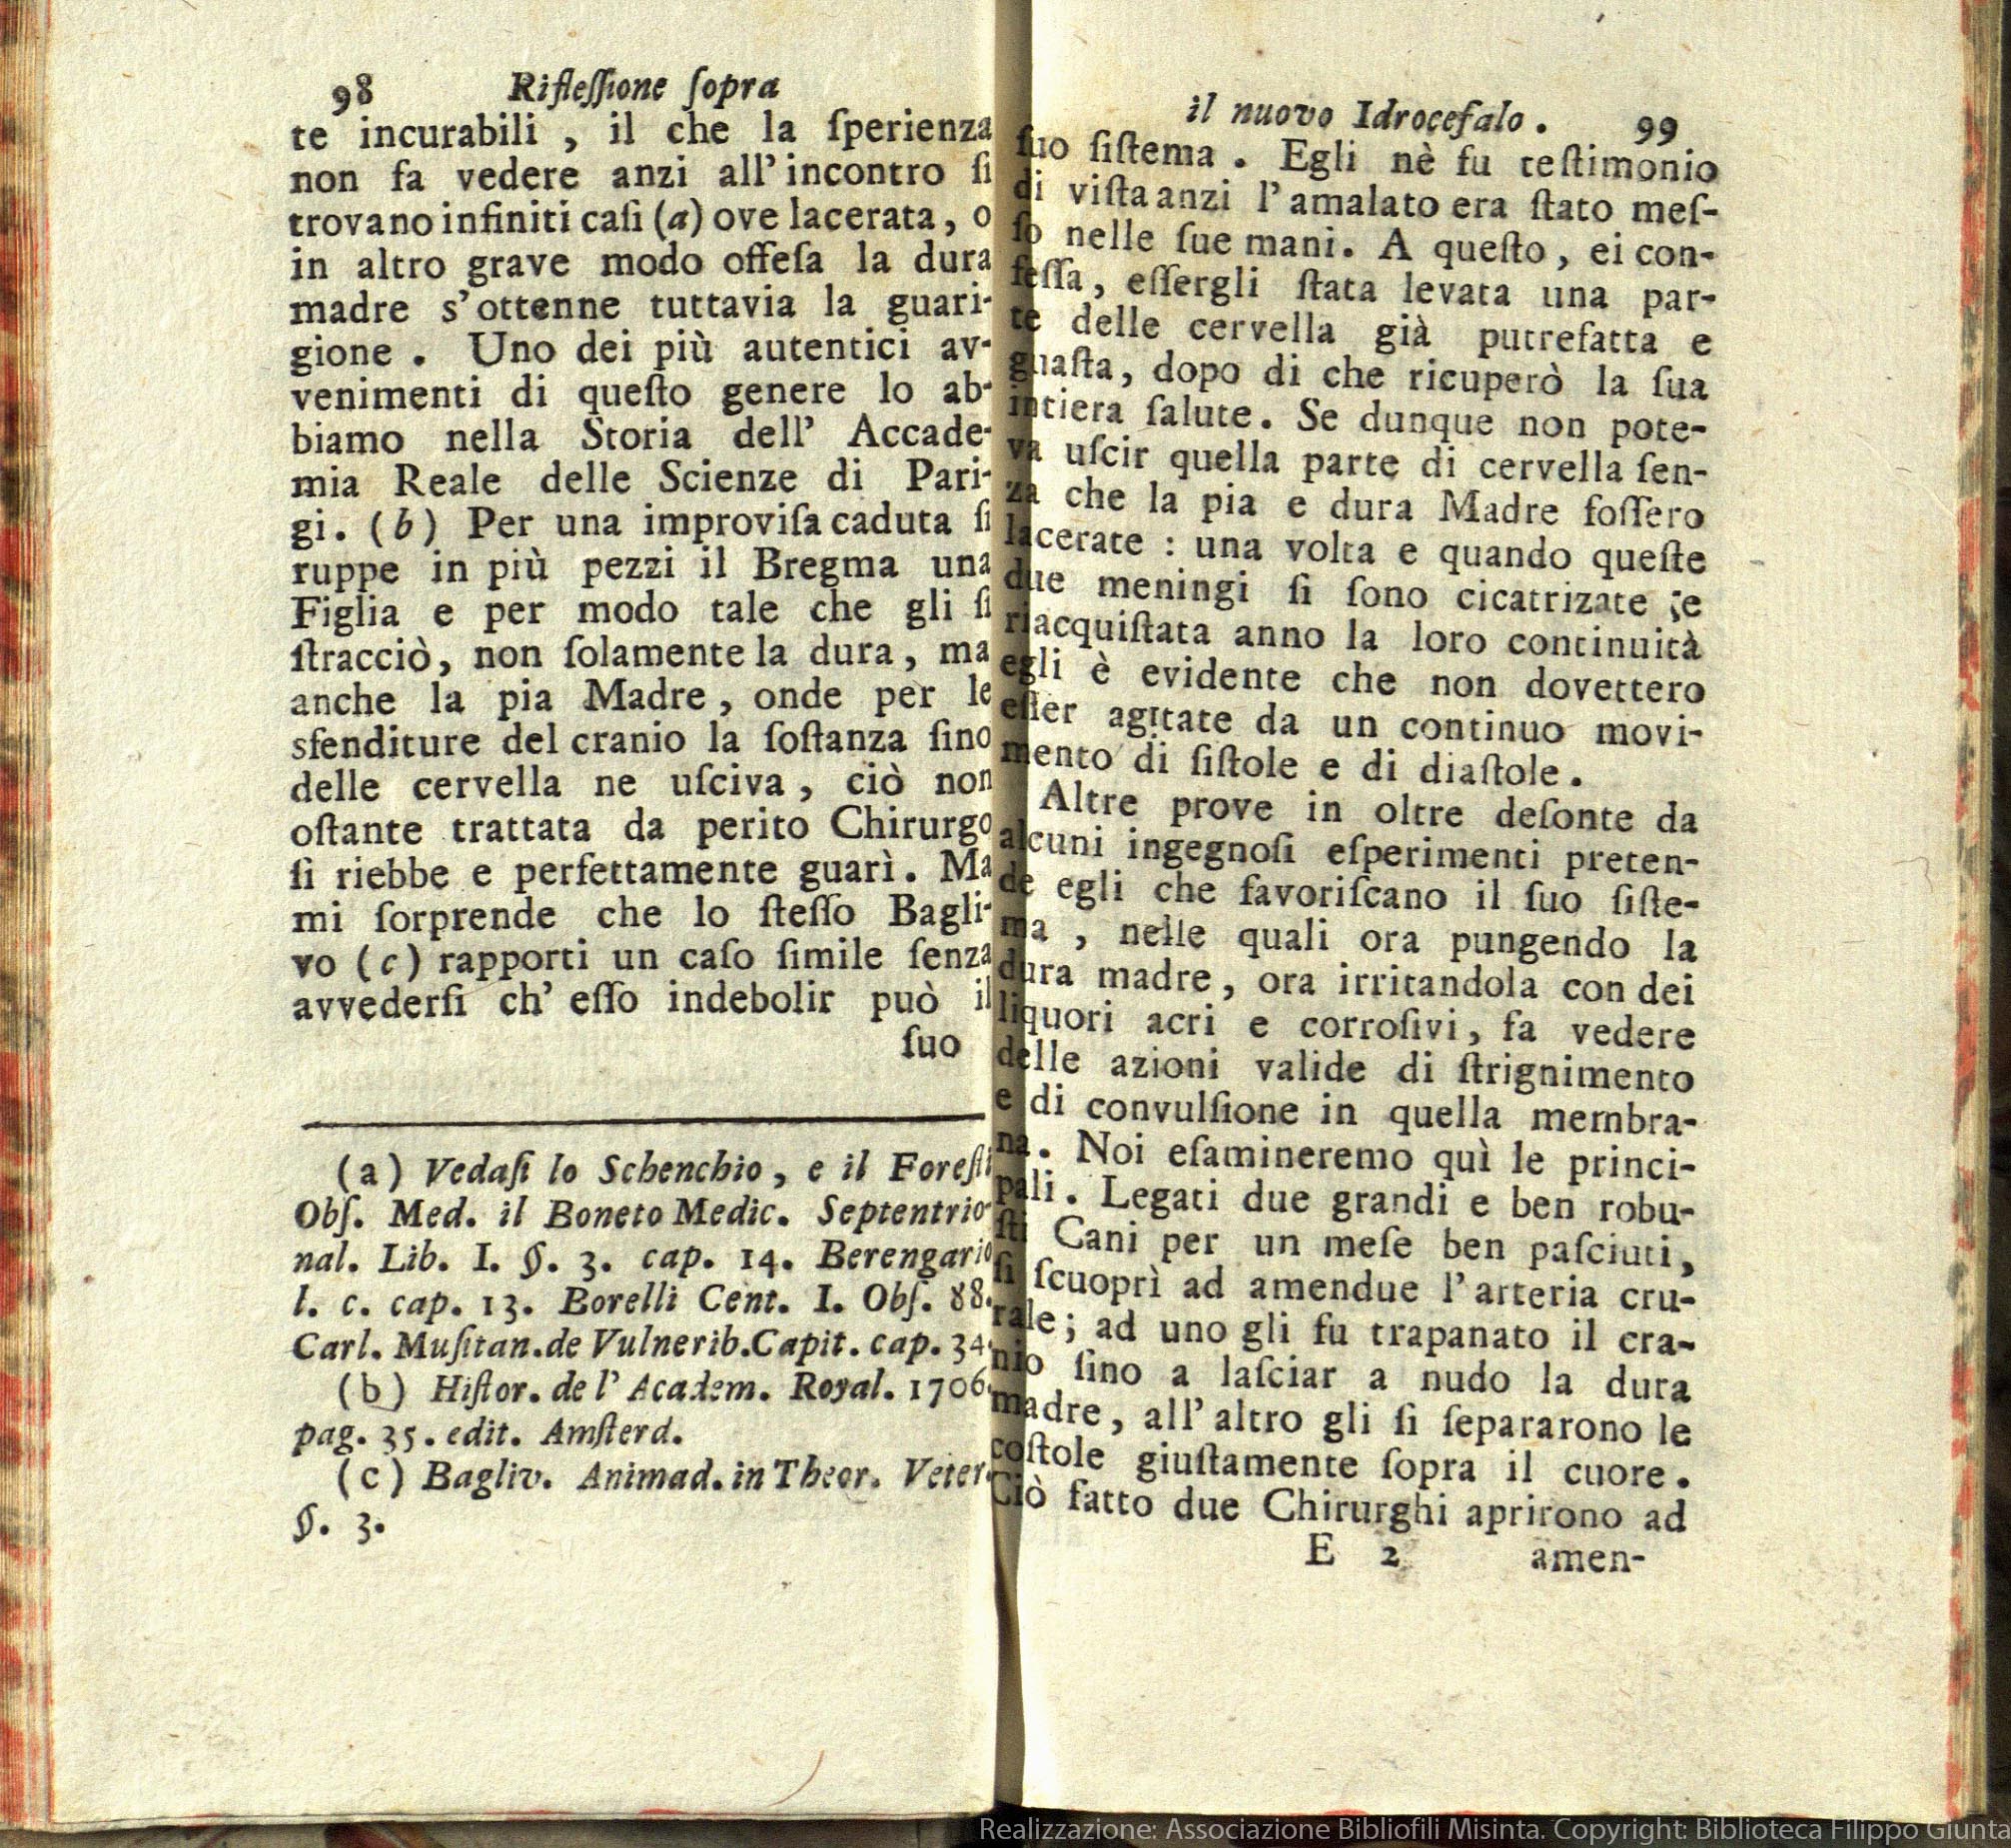 98 Riflessione ſopra
te incurabili , il che la ſperienza
non fa vedere anzi all' incontro ſi
trovano infiniti caſi (a) ove lacerata, o
in altro grave modo offeſa la dura
madre s'ottenne tuttavia la guari-
gione . Uno dei più autentici av-
venimenti di queſto genere lo ab-
biamo nella Storia dell' Accade-
mia Reale delle Scienze di Pari-
gi. (b) Per una improviſa caduta ſi
ruppe in più pezzi il Bregma una
Figlia e per modo tale che gli ſi
ſtracciò, non ſolamente la dura, ma
anche la pia Madre, onde per le
sfenditure del cranio la ſoſtanza ſino
delle cervella ne uſciva, ciò non
oſtante trattata da perito Chirurgo
ſi riebbe e perfettamente guarì. Ma
mi ſorprende che lo ſteſſo Bagli-
vo (c) rapporti un caſo ſimile ſenza
avvederſi ch' eſſo indebolir può il
ſuo
(a) Vedaſi lo Schenchio, e il Foreſti
Obſ. Med. il Boneto Medic. Septentrio-
nal. Lib. I. §. 3. cap. 14. Berengario
l. c. cap. 13. Borelli Cent. I. Obſ. 88.
Carl. Muſitan. de Vulnerib. Capit. cap. 34.
(b) Hiſtor. de l' Academ. Royal. 1706.
pag. 35. edit. Amſterd.
(c) Bagliv. Animad. in Theor. Veter.
§. 3.
il nuovo Idrocefalo. 99
ſuo ſiſtema . Egli nè fu teſtimonio
di viſta anzi l'amalato era ſtato meſ-
ſo nelle ſue mani. A queſto, ei con-
feſſa, eſſergli ſtata levata una par-
te delle cervella già putrefatta e
guaſta, dopo di che ricuperò la ſua
intiera ſalute. Se dunque non pote-
va uſcir quella parte di cervella ſen-
za che la pia e dura Madre foſſero
lacerate : una volta e quando queſte
due meningi ſi ſono cicatrizate ;e
riacquiſtata anno la loro continuità
egli è evidente che non dovettero
eſſer agitate da un continuo movi-
mento di ſiſtole e di diaſtole.
Altre prove in oltre deſonte da
alcuni ingegnoſi eſperimenti preten-
de egli che favoriſcano il ſuo ſiſte-
ma , nelle quali ora pungendo la
dura madre, ora irritandola con dei
liquori acri e corroſivi, fa vedere
delle azioni valide di ſtrignimento
e di convulſione in quella membra-
na. Noi eſamineremo quì le princi-
pali. Legati due grandi e ben robu-
ſti Cani per un meſe ben paſciuti,
ſi ſcuoprì ad amendue l'arteria cru-
rale; ad uno gli fu trapanato il cra-
nio ſino a laſciar a nudo la dura
madre, all' altro gli ſi ſepararono le
coſtole giuſtamente ſopra il cuore.
Ciò fatto due Chirurghi aprirono ad
E 2 amen-
Realizzazione: Associazione Bibliofili Misinta. Copyright: Biblioteca Filippo Giunta